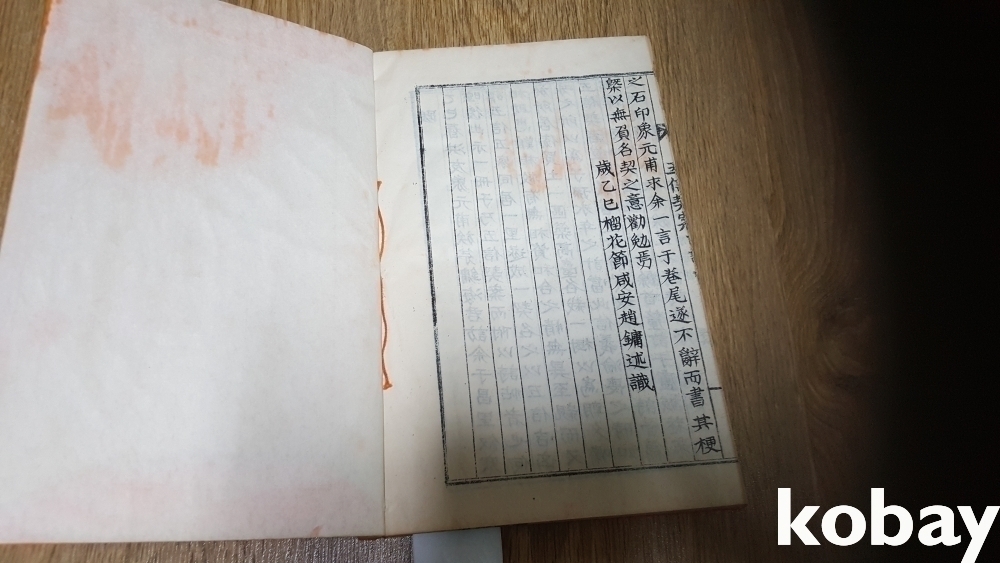 之石印象元甫求余一言于卷尾遂不辭而書其梗
槩以無負名契之意勸勉焉
歲乙巳榴花節咸安趙鏞述識
kobay